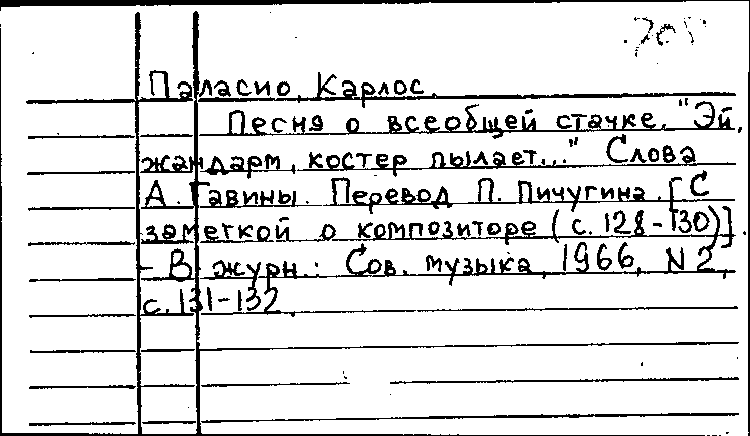 705
Паласио, Карлос.
Песня о всеобщей стачке. "Эй,
жандарм, костер пылает..." Слова
А. Гавины. Перевод П. Пичугина. [С
заметкой о композиторе (с. 128-130)].
- В журн.: Сов. музыка, 1966, N 2,
с. 131-132.